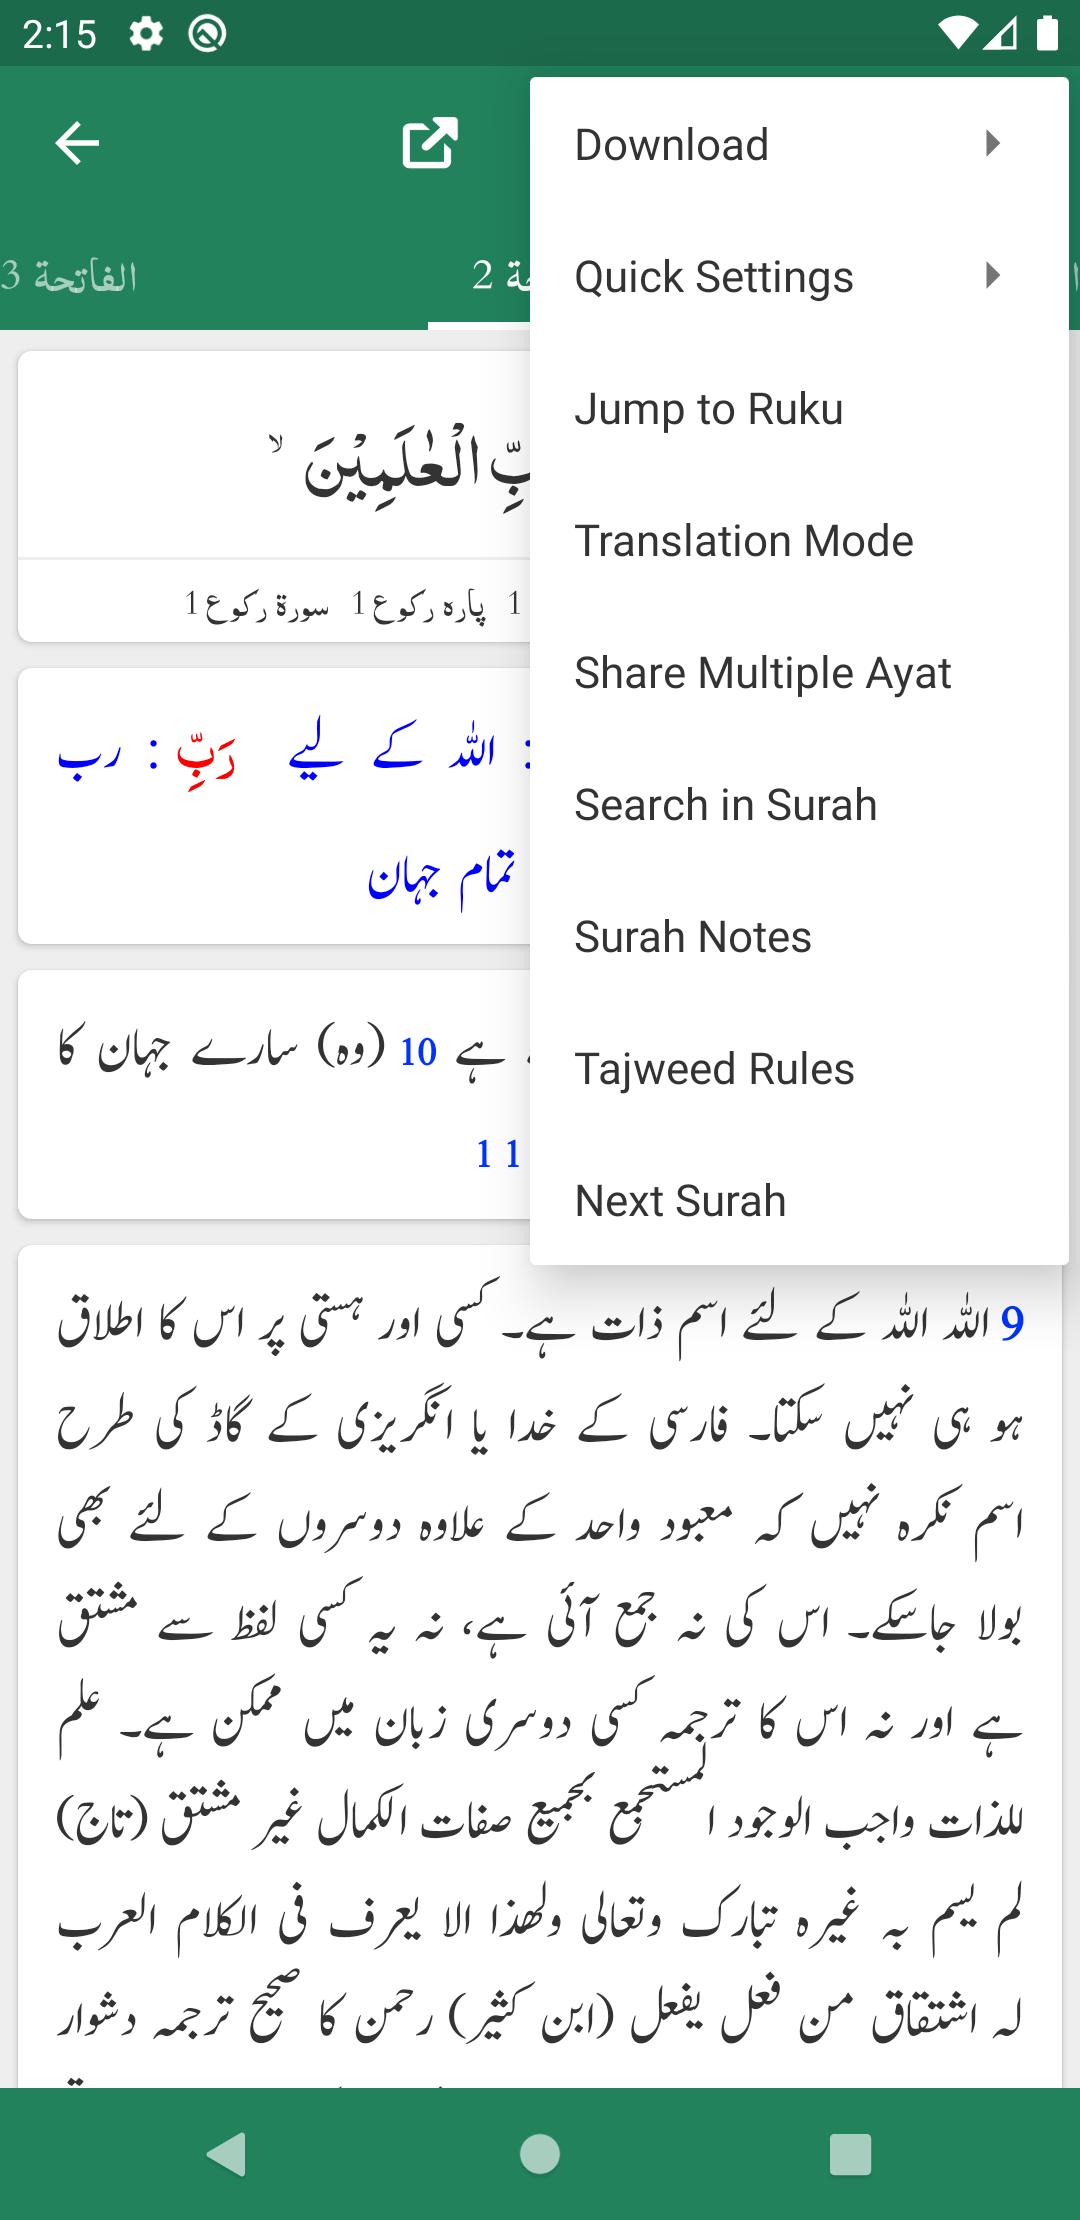 2:15
الفاتحة 3
2
Download
Quick Settings
Jump to Ruku
Translation Mode
Share Multiple Ayat
Search in Surah
Surah Notes
Tajweed Rules
Next Surah
الْعٰلَمِيْنَ ۙ
1 پارہ رکوع 1 سورۃ رکوع 1
: اللہ کے لیے رَبِّ : رب
تمام جہان
ہے 10 (وہ) سارے جہان کا
11
9 اللہ اللہ کے لئے اسم ذات ہے۔ کسی اور ہستی پر اس کا اطلاق
ہو ہی نہیں سکتا۔ فارسی کے خدا یا انگریزی کے گاڈ کی طرح
اسم نکرہ نہیں کہ معبود واحد کے علاوہ دوسروں کے لئے بھی
بولا جاسکے۔ اس کی نہ جمع آئی ہے، نہ یہ کسی لفظ سے مشتق
ہے اور نہ اس کا ترجمہ کسی دوسری زبان میں ممکن ہے۔ علم
للذات واجب الوجود المستجمع بجمیع صفات الکمال غیر مشتق (تاج)
لم یسم بہ غیرہ تبارک وتعالی ولھذا الا یعرف فی الکلام العرب
لہ اشتقاق من فعل یفعل (ابن کثیر) رحمن کا صحیح ترجمہ دشوار